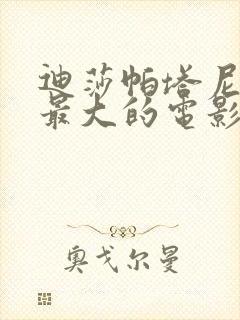 迪莎帕塔尼
最大的电影
奥戈尔曼